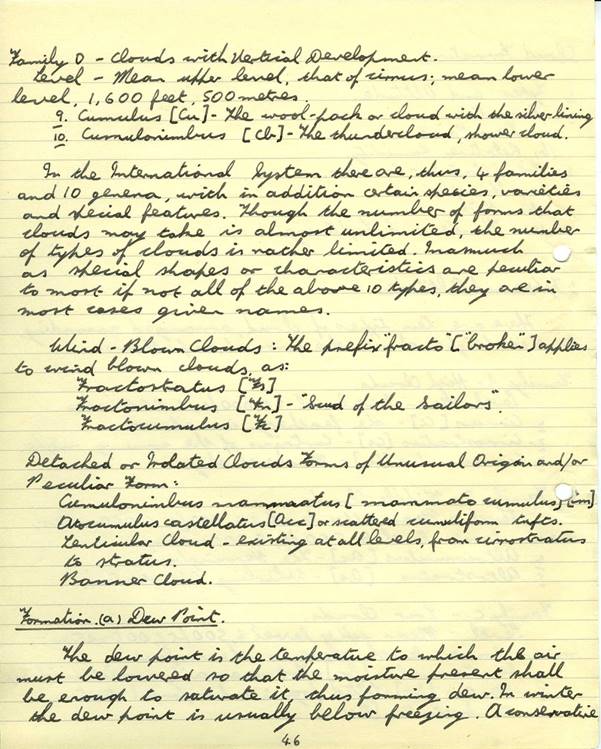 Family D - Clouds with Vertical Development.
Level - Mean upper level, that of cirrus; mean lower
level, 1,600 feet, 500 metres.
9. Cumulus [Cu] - The wool-pack or cloud with the silver lining
10. Cumulonimbus [Cb] - The thundercloud, shower cloud.
In the International System there are, thus, 4 families
and 10 genera, with in addition certain species, varieties
and special features. Though the number of forms that
clouds may take is almost unlimited, the number
of types of clouds is rather limited. Inasmuch
as special shapes or characteristics are peculiar
to most if not all of the above 10 types, they are in
most cases given names.
Wind-Blown Clouds: The prefix "fracto" ["broken"] applies
to wind blown clouds, as:
Fractostatus [Fs]
Fractonimbus [Fn] - "Scud of the Sailors".
Fractocumulus [Fc]
Detached or Isolated Clouds Forms of Unusual Origin and/or
Peculiar Form:
Cumulonimbus mammatus [mammato cumulus]
Altocumulus castellatus [Acc] or scattered cumuliform tufts.
Lenticular Cloud - existing at all levels, from cirrostratus
to stratus.
Banner Cloud.
Formation. (a) Dew Point.
The dew point is the temperature to which the air
must be lowered so that the moisture present shall
be enough to saturate it, thus forming dew. In winter
the dew point is usually below freezing. A conservative
46